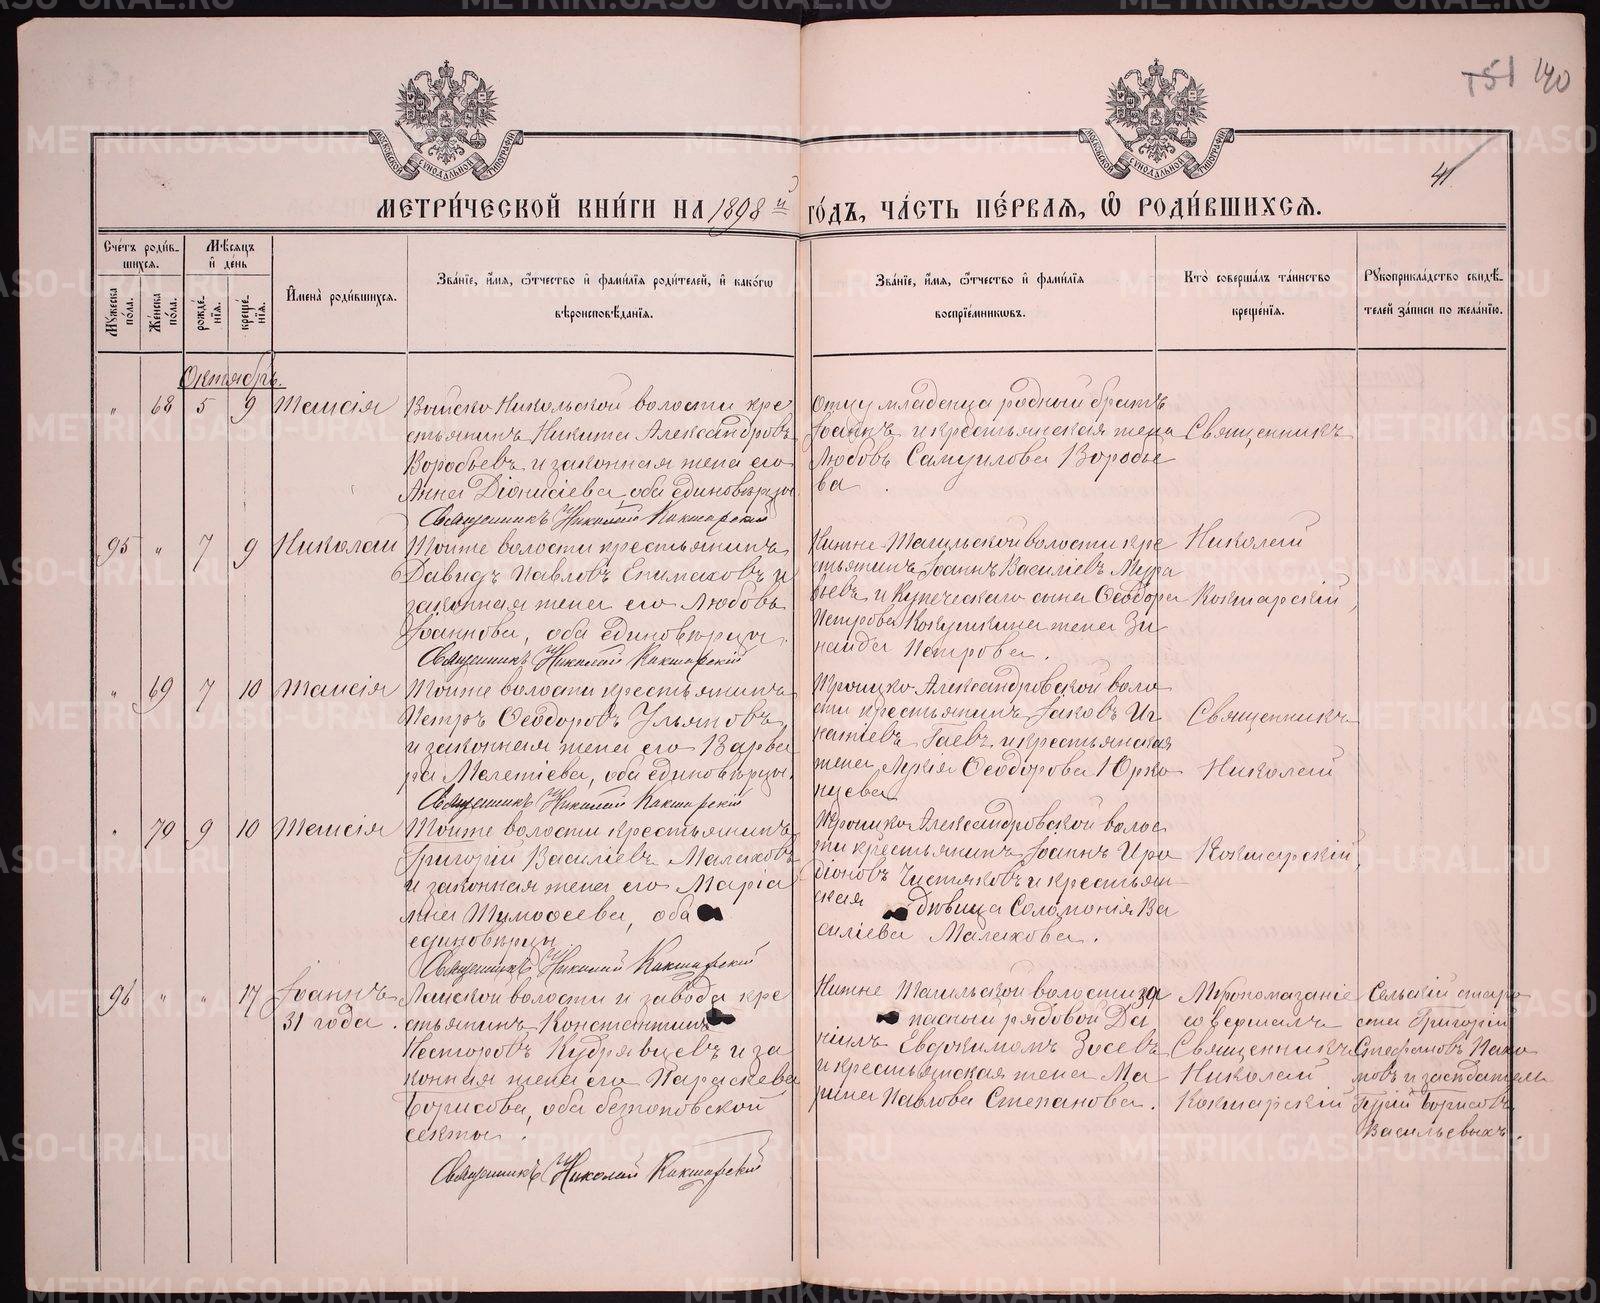 151 140
41
МОСКОВСКОЙ СѴНОДАЛЬНОЙ ТИПОГРАФІИ
МОСКОВСКОЙ СѴНОДАЛЬНОЙ ТИПОГРАФІИ
МЕТРИ́ЧЕСКОЙ КНИ́ГИ НА 1898 й ГО́ДЪ, ЧА́СТЬ ПЕ́РВАѦ, Ѡ҆ РОДИ́ВШИХСѦ.
Сче́тъ роди́в-
шихсѧ.
Му́жеска по́ла.
Же́нска по́ла.
Мѣ́сѧцъ
и҆ де́нь
рожде́-
нїѧ.
креще́-
нїѧ.
И҆мена̀ роди́вшихсѧ.
Зва́нїе, и҆́мѧ, ѻ҆́тчество и҆ фами́лїѧ роди́телей, и҆ како́гѡ
вѣроисповѣ́данїѧ.
Зва́нїе, и҆́мѧ, ѻ҆́тчество и҆ фами́лїѧ
воспрїе́мникѡвъ.
Кто̀ соверша́лъ та́инство
креще́нїѧ.
Рꙋкоприкла́дство свидѣ́-
телей за́писи по жела́нїю.
Октябрь.
" 68 5 9 Таисія
Воиско Никольской волости кре
стьянинъ Никита Александровъ
Воробьевъ и законная жена его
Анна Діонисіева, оба единовѣрцы.
Священникъ Николай Кокшарскій
Отцу младенца родный братъ
Іоаннъ и крестьянская жена
Любовь Самуилова Воробье
ва.
Священникъ
95 " 7 9 Николай
Тойже волости крестьянинъ
Давидъ Павловъ Епимаховъ и
законная жена его Любовь
Іоаннова, оба единовѣрцы.
Священникъ Николай Кокшарскій
Нижне Тагильской волости кре
стьянинъ Іоаннъ Василіевъ Мура
вьевъ и Купеческаго сына Ѳеодора
Петрова жена Зи
наида Петрова.
Николай
Кокшарскій,
" 69 7 10 Таисія
Тойже волости крестьянинъ
Петръ Ѳеодоровъ Ульяновъ
и законная жена его Варва
ра Мелетіева, оба единовѣрцы.
Священникъ Николай Кокшарскій
Троицко Александровской воло
сти крестьянинъ Іаковъ Иг
натіевъ Гаевъ и крестьянская
жена Лукія Ѳеодорова Юрко
вцева
Священникъ
Николай
" 70 9 10 Таисія
Тойже волости крестьянинъ
Григорій Василіевъ Малаховъ
и законная жена его Марі
амна Тимоѳеева, оба
единовѣрцы.
Священникъ Николай Кокшарскій
Троицко Александровской волос
ти крестьянинъ Іоаннъ Иро
діоновъ Чистяковъ и крестьян
ская дѣвица Соломонія Ва
силіева Малахова.
Кокшарскій,
96 " " 17 Іоаннъ
31 года.
Лайской волости и завода кре
стьянинъ Константинъ
Несторовъ Кудрявцевъ и за
конная жена его Параскева
Борисова, оба безпоповской
секты.
Священникъ Николай Кокшарскій
Нижне Тагильской волости за
пасный рядовой Да
ніилъ Евдокимовъ Зосевъ
и крестьянская жена Ма
рина Павлова Степанова.
Мѵропомазаніе
совершалъ
Священникъ
Николай
Кокшарскій
Сельскій старо
ста Григорій
Стефановъ Пахо
мовъ и засѣдатель
Гурій Борисовъ
Васильевыхъ.
METRIKI.GASO-URAL.RU